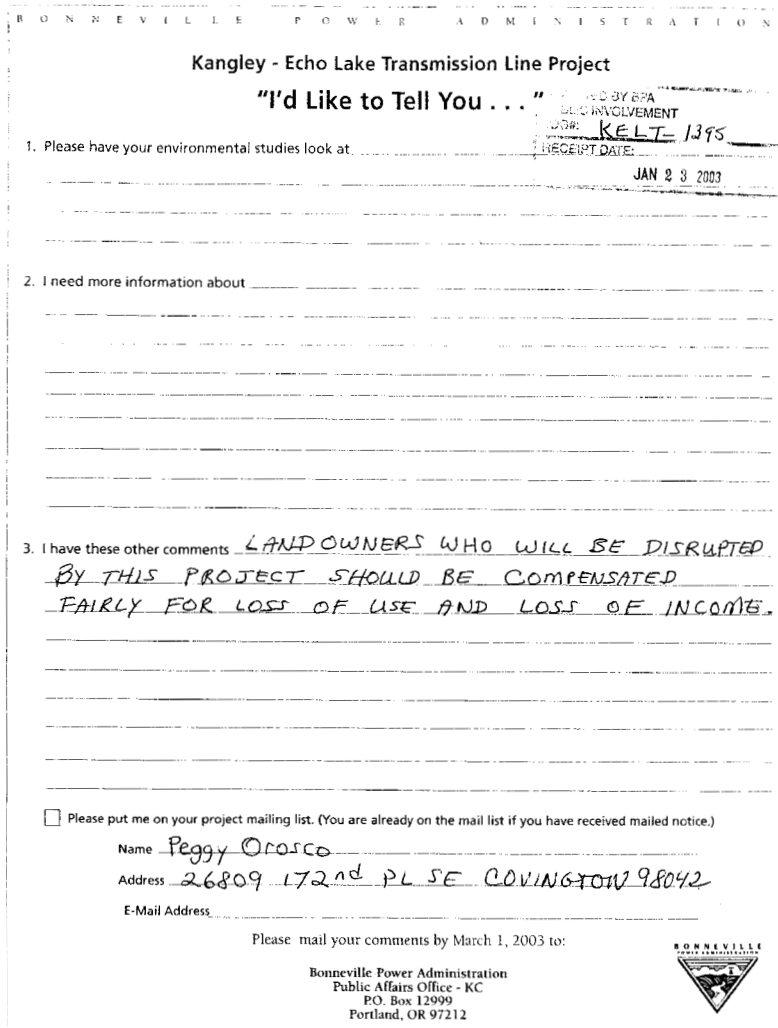 BONNEVILLE POWER ADMINISTRATION
Kangley - Echo Lake Transmission Line Project
"I'd Like to Tell You . . . "
BY BPA
INVOLVEMENT
KELT- 1395
RECEIPT DATE:
JAN 2 3 2003
1. Please have your environmental studies look at
2. I need more information about
3. I have these other comments LANDOWNERS WHO WILL BE DISRUPTED
BY THIS PROJECT SHOULD BE COMPENSATED
FAIRLY FOR LOSS OF USE AND LOSS OF INCOME.
Please put me on your project mailing list. (You are already on the mail list if you have received mailed notice.)
Name Peggy Orosco
Address 26809 172nd PL SE COVINGTON 98042
E-Mail Address
Please mail your comments by March 1, 2003 to:
Bonneville Power Administration
Public Affairs Office - KC
P.O. Box 12999
Portland, OR 97212
BONNEVILLE
POWER ADMINISTRATION